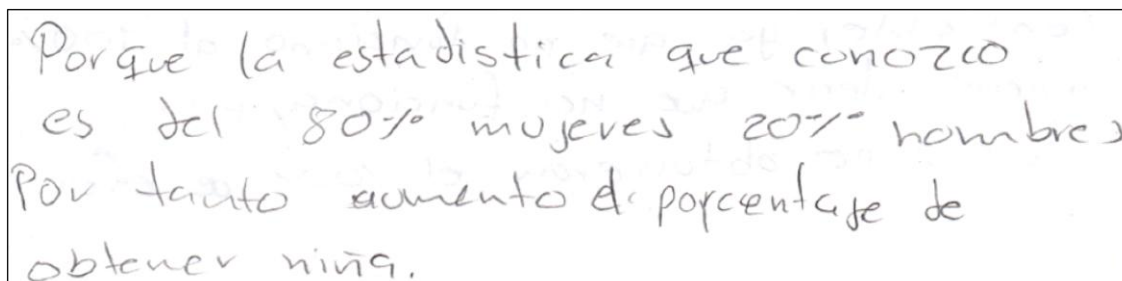 Porque la estadistica que conozco
es del 80% mujeres 20% hombres
Por tanto aumento el porcentaje de
obtener niña.